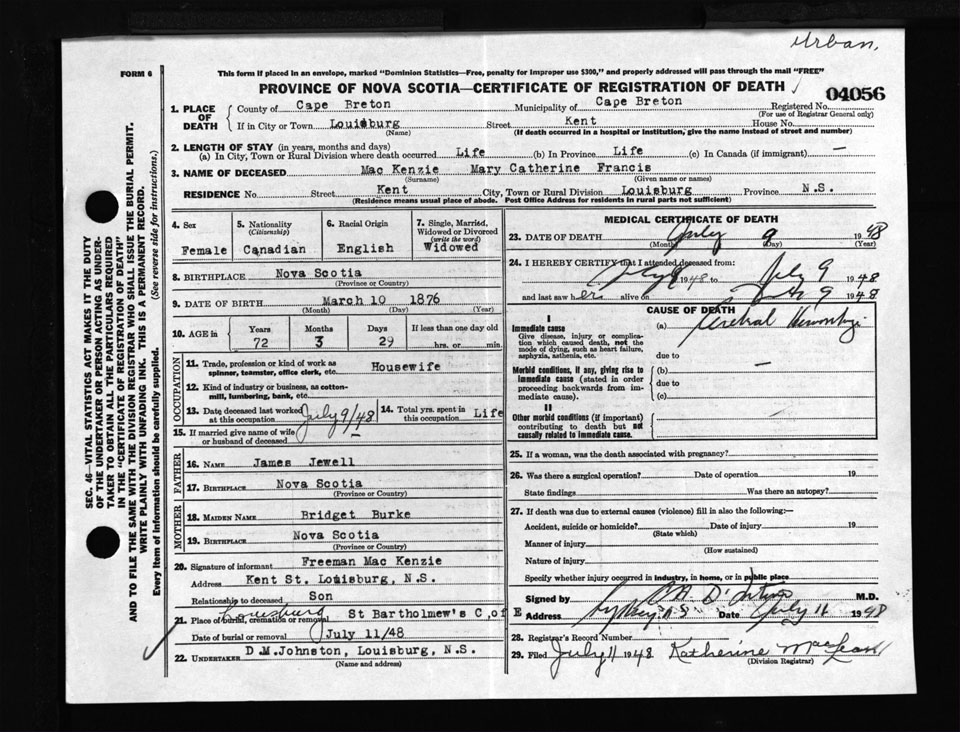 Urban.
FORM 6
This form if placed in an envelope, marked "Dominion Statistics—Free, penalty for improper use $300," and properly addressed will pass through the mail "FREE"
PROVINCE OF NOVA SCOTIA—CERTIFICATE OF REGISTRATION OF DEATH
04056
1. PLACE OF DEATH
County of Cape Breton Municipality of Cape Breton Registered No.
(For use of Registrar General only)
If in City or Town Louisburg Street Kent House No.
(Name) (If death occurred in a hospital or institution, give the name instead of street and number)
2. LENGTH OF STAY (in years, months and days)
(a) In City, Town or Rural Division where death occurred Life (b) In Province Life (c) In Canada (if immigrant) —
3. NAME OF DECEASED Mac Kenzie Mary Catherine Francis
(Surname) (Given name or names)
RESIDENCE No. Street Kent City, Town or Rural Division Louisburg Province N.S.
(Residence means usual place of abode. Post Office Address for residents in rural parts not sufficient)
4. Sex Female
5. Nationality (Citizenship) Canadian
6. Racial Origin English
7. Single, Married, Widowed or Divorced (write the word) Widowed
8. BIRTHPLACE Nova Scotia
(Province or Country)
9. DATE OF BIRTH March 10 1876
(Month) (Day) (Year)
10. AGE in Years 72 Months 3 Days 29 If less than one day old hrs. or min.
OCCUPATION
11. Trade, profession or kind of work as spinner, teamster, office clerk, etc. Housewife
12. Kind of industry or business, as cotton-mill, lumbering, bank, etc.
13. Date deceased last worked at this occupation July 9/48
14. Total yrs. spent in this occupation Life
15. If married give name of wife or husband of deceased —
FATHER
16. NAME James Jewell
17. BIRTHPLACE Nova Scotia
(Province or Country)
MOTHER
18. MAIDEN NAME Bridget Burke
19. BIRTHPLACE Nova Scotia
(Province or Country)
20. Signature of informant Freeman Mac Kenzie
Address Kent St. Louisburg, N.S.
Relationship to deceased Son
21. Place of burial, cremation or removal Louisburg St Bartholmew's C. of E
Date of burial or removal July 11/48
22. UNDERTAKER D.M.Johnston, Louisburg, N.S.
(Name and address)
MEDICAL CERTIFICATE OF DEATH
23. DATE OF DEATH July 9 1948
(Month) (Day) (Year)
24. I HEREBY CERTIFY that I attended deceased from:
July 9 1948 to July 9 1948
and last saw her alive on July 9 1948
CAUSE OF DEATH
I
Immediate cause
Give disease, injury or complication which caused death, not the mode of dying, such as heart failure, asphyxia, asthenia, etc.
(a) Cerebral
due to
Morbid conditions, if any, giving rise to immediate cause (stated in order proceeding backwards from immediate cause).
(b) —
due to
(c)
II
Other morbid conditions (if important) contributing to death but not causally related to immediate cause.
25. If a woman, was the death associated with pregnancy?
26. Was there a surgical operation? Date of operation 19
State findings Was there an autopsy?
27. If death was due to external causes (violence) fill in also the following:—
Accident, suicide or homicide? Date of injury 19
(State which)
Manner of injury
(How sustained)
Nature of injury
Specify whether injury occurred in industry, in home, or in public place
Signed by M.D.
Address Sydney N S Date July 11 1948
28. Registrar's Record Number
29. Filed July 11 1948 Katherine MacLean
(Division Registrar)
SEC. 46—VITAL STATISTICS ACT MAKES IT THE DUTY
OF THE UNDERTAKER OR PERSON ACTING AS UNDER-
TAKER TO OBTAIN ALL THE PARTICULARS REQUIRED
IN THE "CERTIFICATE OF REGISTRATION OF DEATH"
AND TO FILE THE SAME WITH THE DIVISION REGISTRAR WHO SHALL ISSUE THE BURIAL PERMIT.
WRITE PLAINLY WITH UNFADING INK. THIS IS A PERMANENT RECORD.
Every item of information should be carefully supplied. (See reverse side for instructions.)